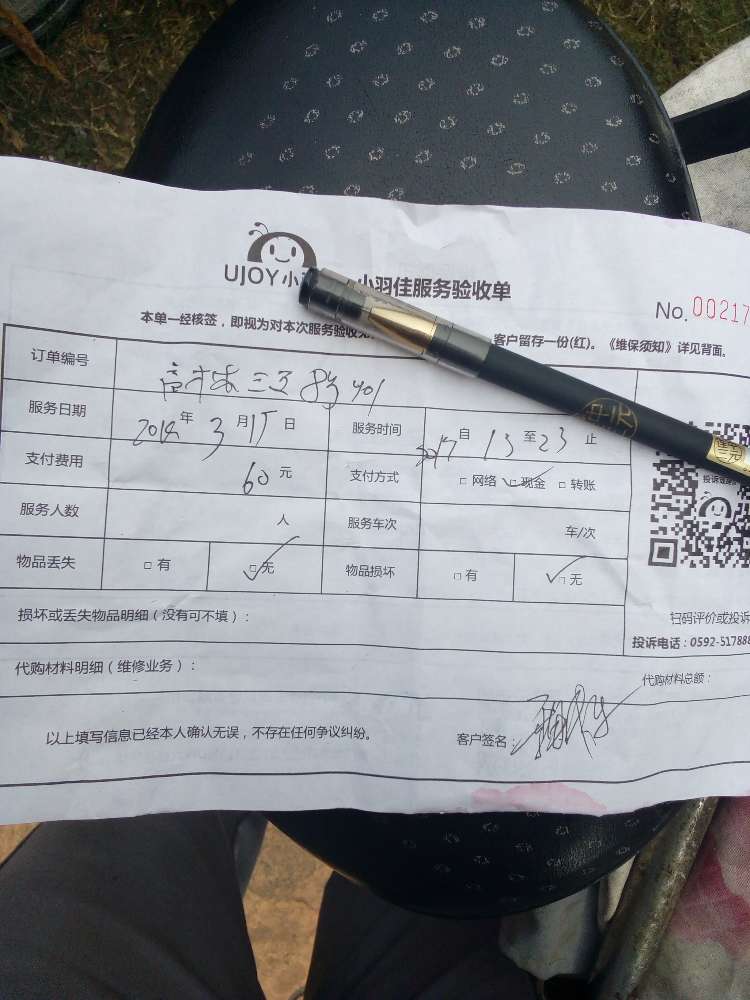 UJOY小
小羽佳服务验收单
No. 00217
本单一经核签，即视为对本次服务验收
客户留存一份(红)。《维保须知》详见背面。
订单编号 高林三 401
服务日期 2018年3月15日 服务时间 自13至23止
支付费用 60元 支付方式 □网络 ☑现金 □转账
服务人数 人 服务车次 车/次
物品丢失 □有 ☑无 物品损坏 □有 ☑无
损坏或丢失物品明细（没有可不填）：
扫码评价或投诉
投诉电话：0592-51788
代购材料明细（维修业务）：
代购材料总额：
以上填写信息已经本人确认无误，不存在任何争议纠纷。
客户签名：